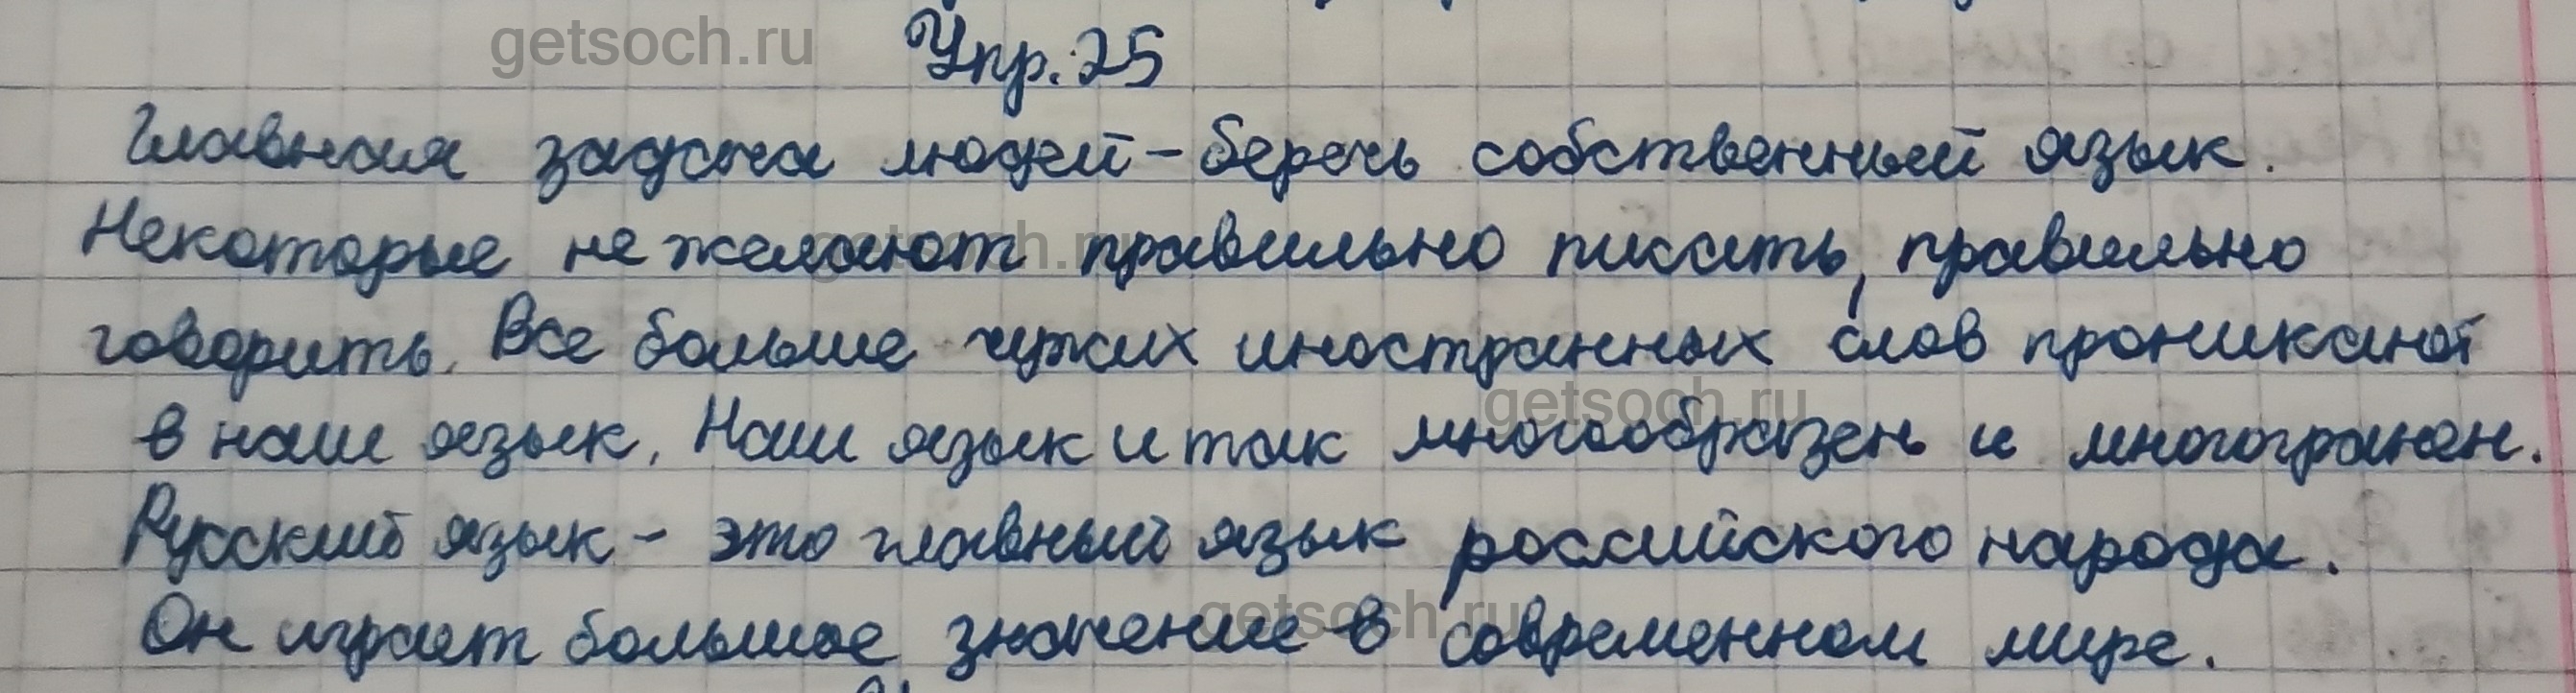 getsoch.ru
Упр. 25
Главная задача людей – беречь собственный язык.
Некоторые не желают правильно писать, правильно
getsoch.ru
говорить. Все больше чужих иностранных слов проникают
getsoch.ru
в наш язык. Наш язык и так многообразен и многогранен.
Русский язык – это главный язык российского народа.
getsoch.ru
Он играет большое значение в современном мире.